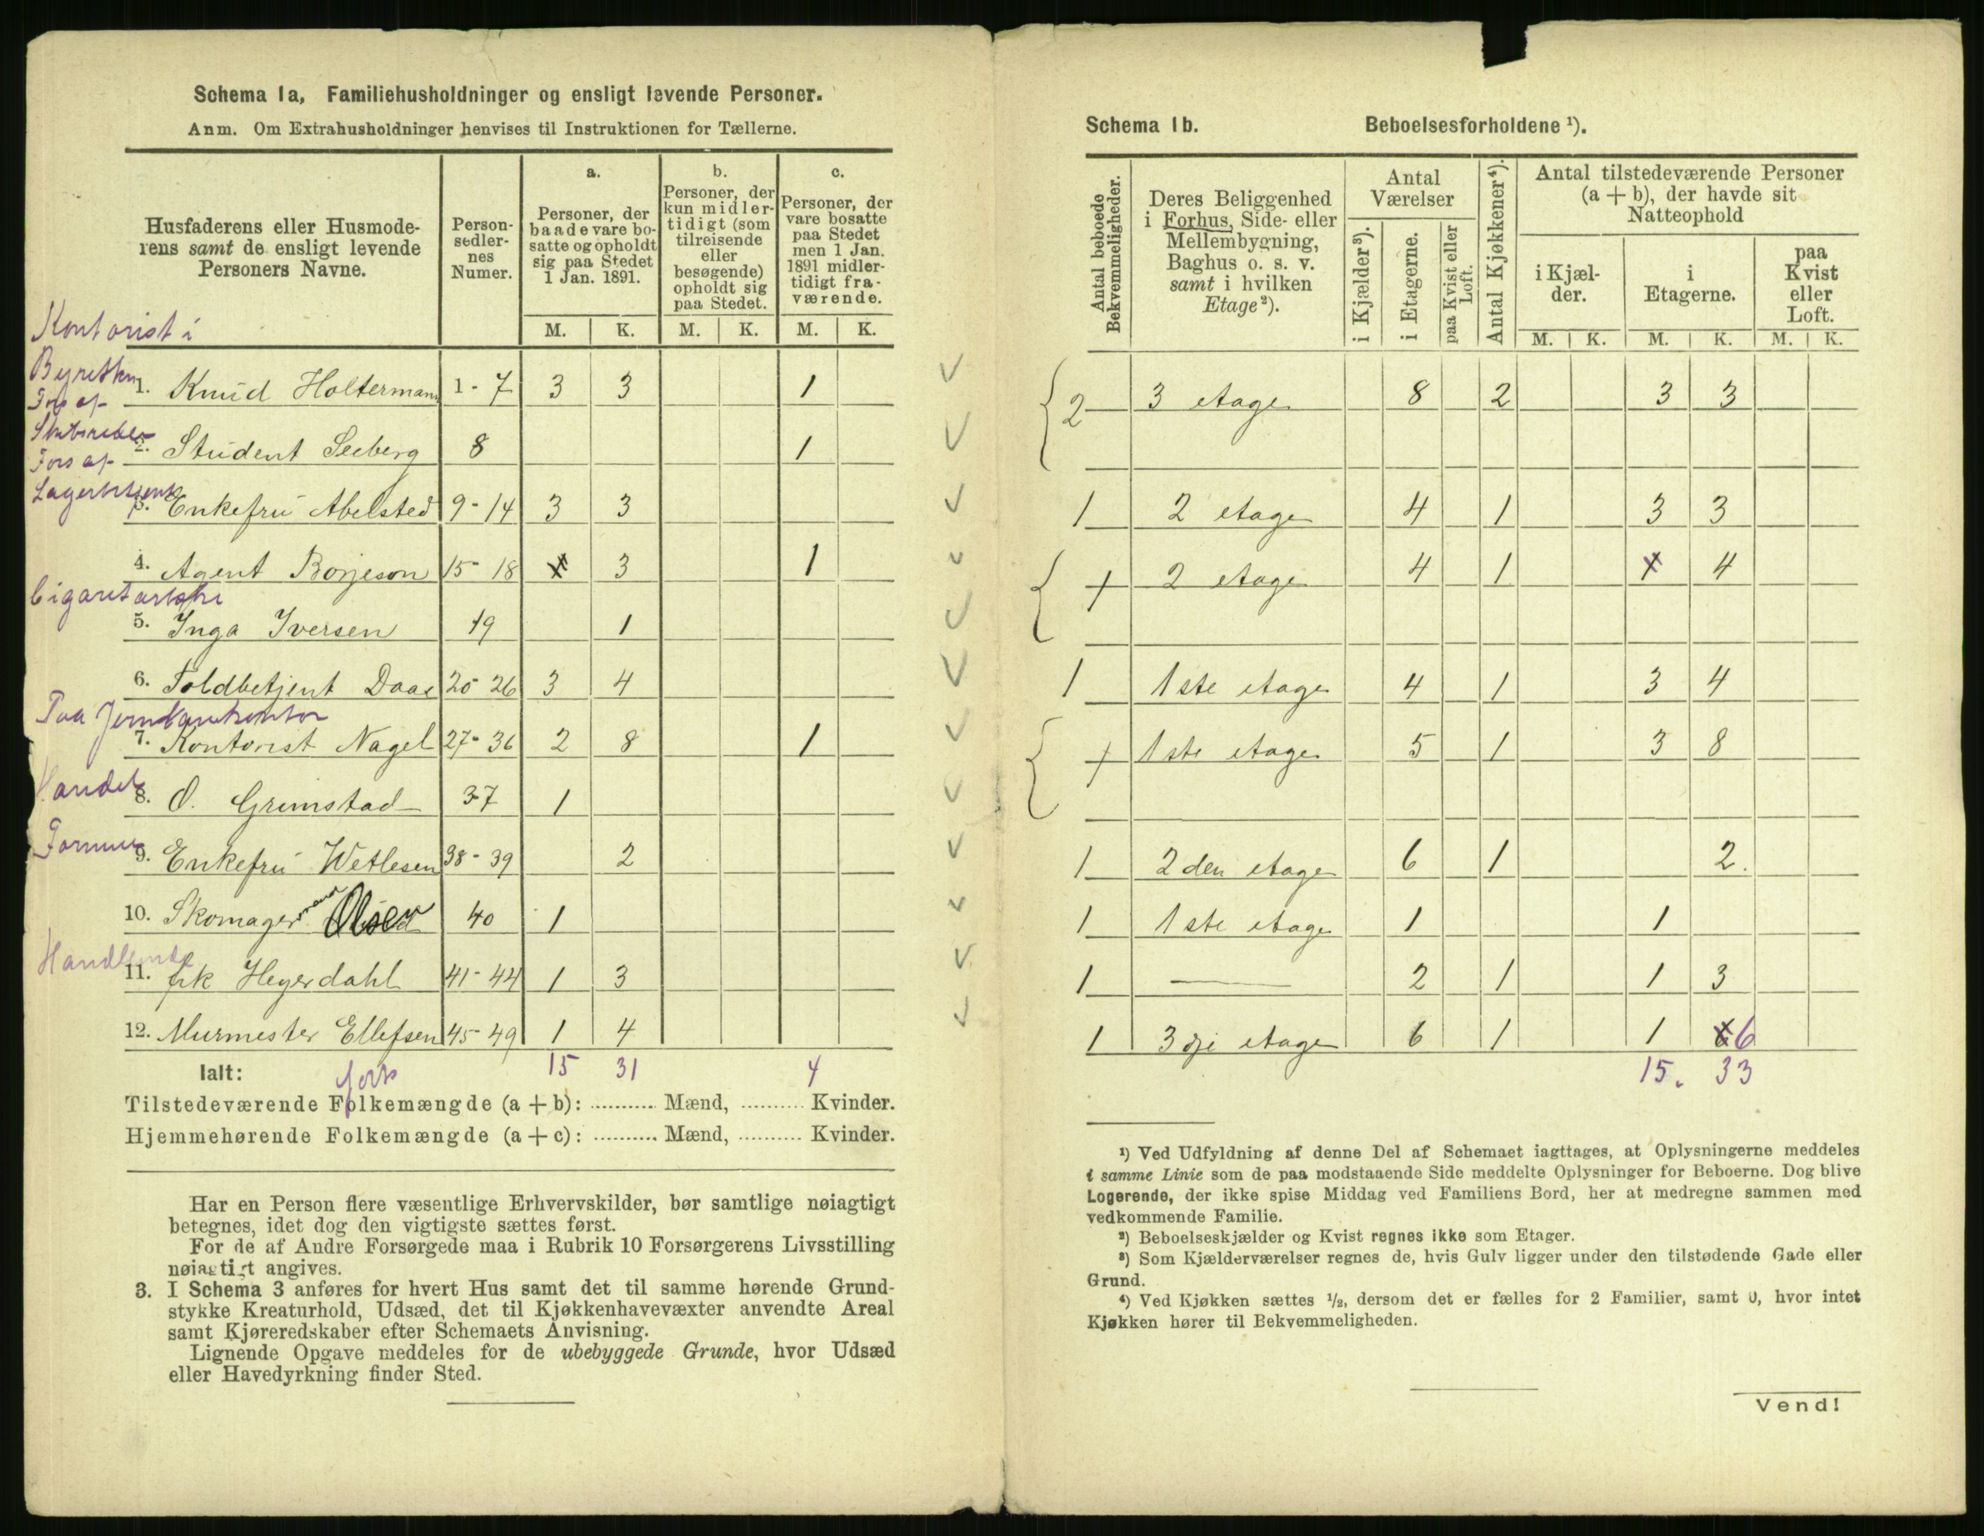 Schema 1a, Familiehusholdninger og ensligt levende Personer.
Anm. Om Extrahusholdninger henvises til Instruktionen for Tællerne.
Husfaderens eller Husmoderens samt de ensligt levende Personers Navne.
Personsedlernes Numer.
a.
Personer, der baade vare bosatte og opholdt sig paa Stedet 1 Jan. 1891.
b.
Personer, der kun midlertidigt (som tilreisende eller besøgende) opholdt sig paa Stedet.
c.
Personer, der vare bosatte paa Stedet men 1 Jan. 1891 midlertidigt fraværende.
M. K. M. K. M. K.
Kontorist i
Byretten
1. Knud Holtermann 1-7 3 3 1
Fors af
2. Student Seeberg 8 1
Fors af
3. Enkefru Abelsted 9-14 3 3
4. Agent Borjeson 15-18 3 1
5. Inga Iversen 19 1
6. Toldbetjent Daae 20-26 3 4
Paa Jernbanekontor
7. Kontorist Nagel 27-36 2 8 1
Handels
8. O. Grimstad 37 1
Formue
9. Enkefru Wetlesen 38-39 2
10. Skomager Olsen 40 1
11. frk Heyerdahl 41-44 1 3
12. Murmester Ellefsen 45-49 1 4
Ialt: 15 31 4
Tilstedeværende Folkemængde (a + b): .......... Mænd, .......... Kvinder.
Hjemmehørende Folkemængde (a + c): .......... Mænd, .......... Kvinder.
Har en Person flere væsentlige Erhvervskilder, bør samtlige nøiagtigt
betegnes, idet dog den vigtigste sættes først.
For de af Andre Forsørgede maa i Rubrik 10 Forsørgerens Livsstilling
nøiagtigt angives.
3. I Schema 3 anføres for hvert Hus samt det til samme hørende Grund-
stykke Kreaturhold, Udsæd, det til Kjøkkenhavevæxter anvendte Areal
samt Kjøreredskaber efter Schemaets Anvisning.
Lignende Opgave meddeles for de ubebyggede Grunde, hvor Udsæd
eller Havedyrkning finder Sted.
Schema 1b. Beboelsesforholdene ¹).
Antal beboede Bekvemmeligheder.
Deres Beliggenhed i Forhus, Side- eller Mellembygning, Baghus o. s. v. samt i hvilken Etage ²).
Antal Værelser
i Kjælder ³).
i Etagerne.
paa Kvist eller Loft.
Antal Kjøkkener ⁴).
Antal tilstedeværende Personer (a + b), der havde sit Natteophold
i Kjælder.
i Etagerne.
paa Kvist eller Loft.
M. K. M. K. M. K.
2 3 etage 8 2 3 3
1 2 etage 4 1 3 3
2 etage 4 1 4
1 1ste etage 4 1 3 4
1ste etage 5 1 3 8
1 2den etage 6 1 2.
1 1ste etage 1 1
1 — 2 1 1 3
1 3dje etage 6 1 1 6
15. 33
¹) Ved Udfyldning af denne Del af Schemaet iagttages, at Oplysningerne meddeles
i samme Linie som de paa modstaaende Side meddelte Oplysninger for Beboerne. Dog blive
Logerende, der ikke spise Middag ved Familiens Bord, her at medregne sammen med
vedkommende Familie.
²) Beboelseskjælder og Kvist regnes ikke som Etager.
³) Som Kjælderværelser regnes de, hvis Gulv ligger under den tilstødende Gade eller
Grund.
⁴) Ved Kjøkken sættes ½, dersom det er fælles for 2 Familier, samt 0, hvor intet
Kjøkken hører til Bekvemmeligheden.
Vend!